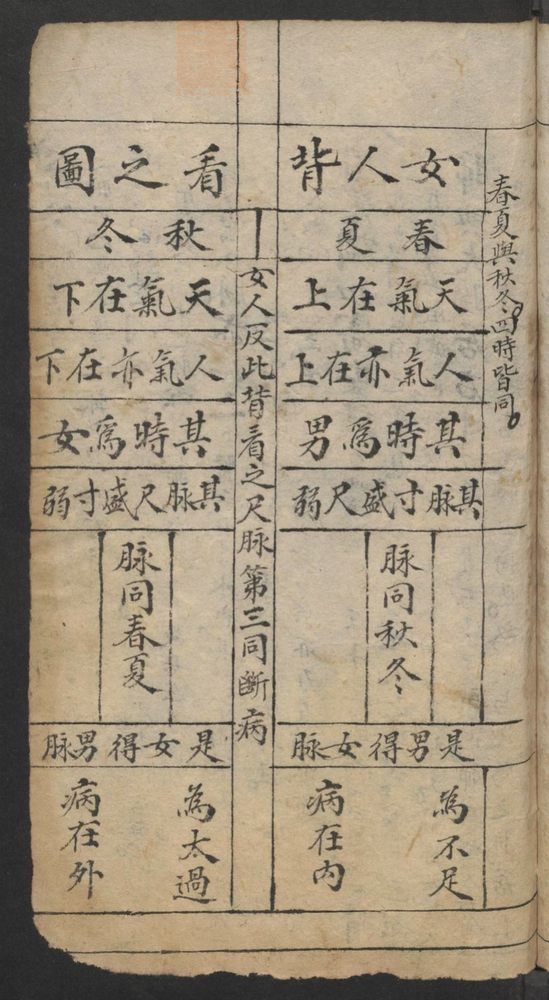 春夏與秋冬四時皆同
女人背看之圖
春夏
天氣在上
人氣亦在上
其時爲男
其脉寸盛尺弱
脉同秋冬
是男得女脉
為不足
病在內
女人反此背看之尺脉第三同斷病
秋冬
天氣在下
人氣亦在下
其時爲女
其脉尺盛寸弱
脉同春夏
是女得男脉
為太過
病在外